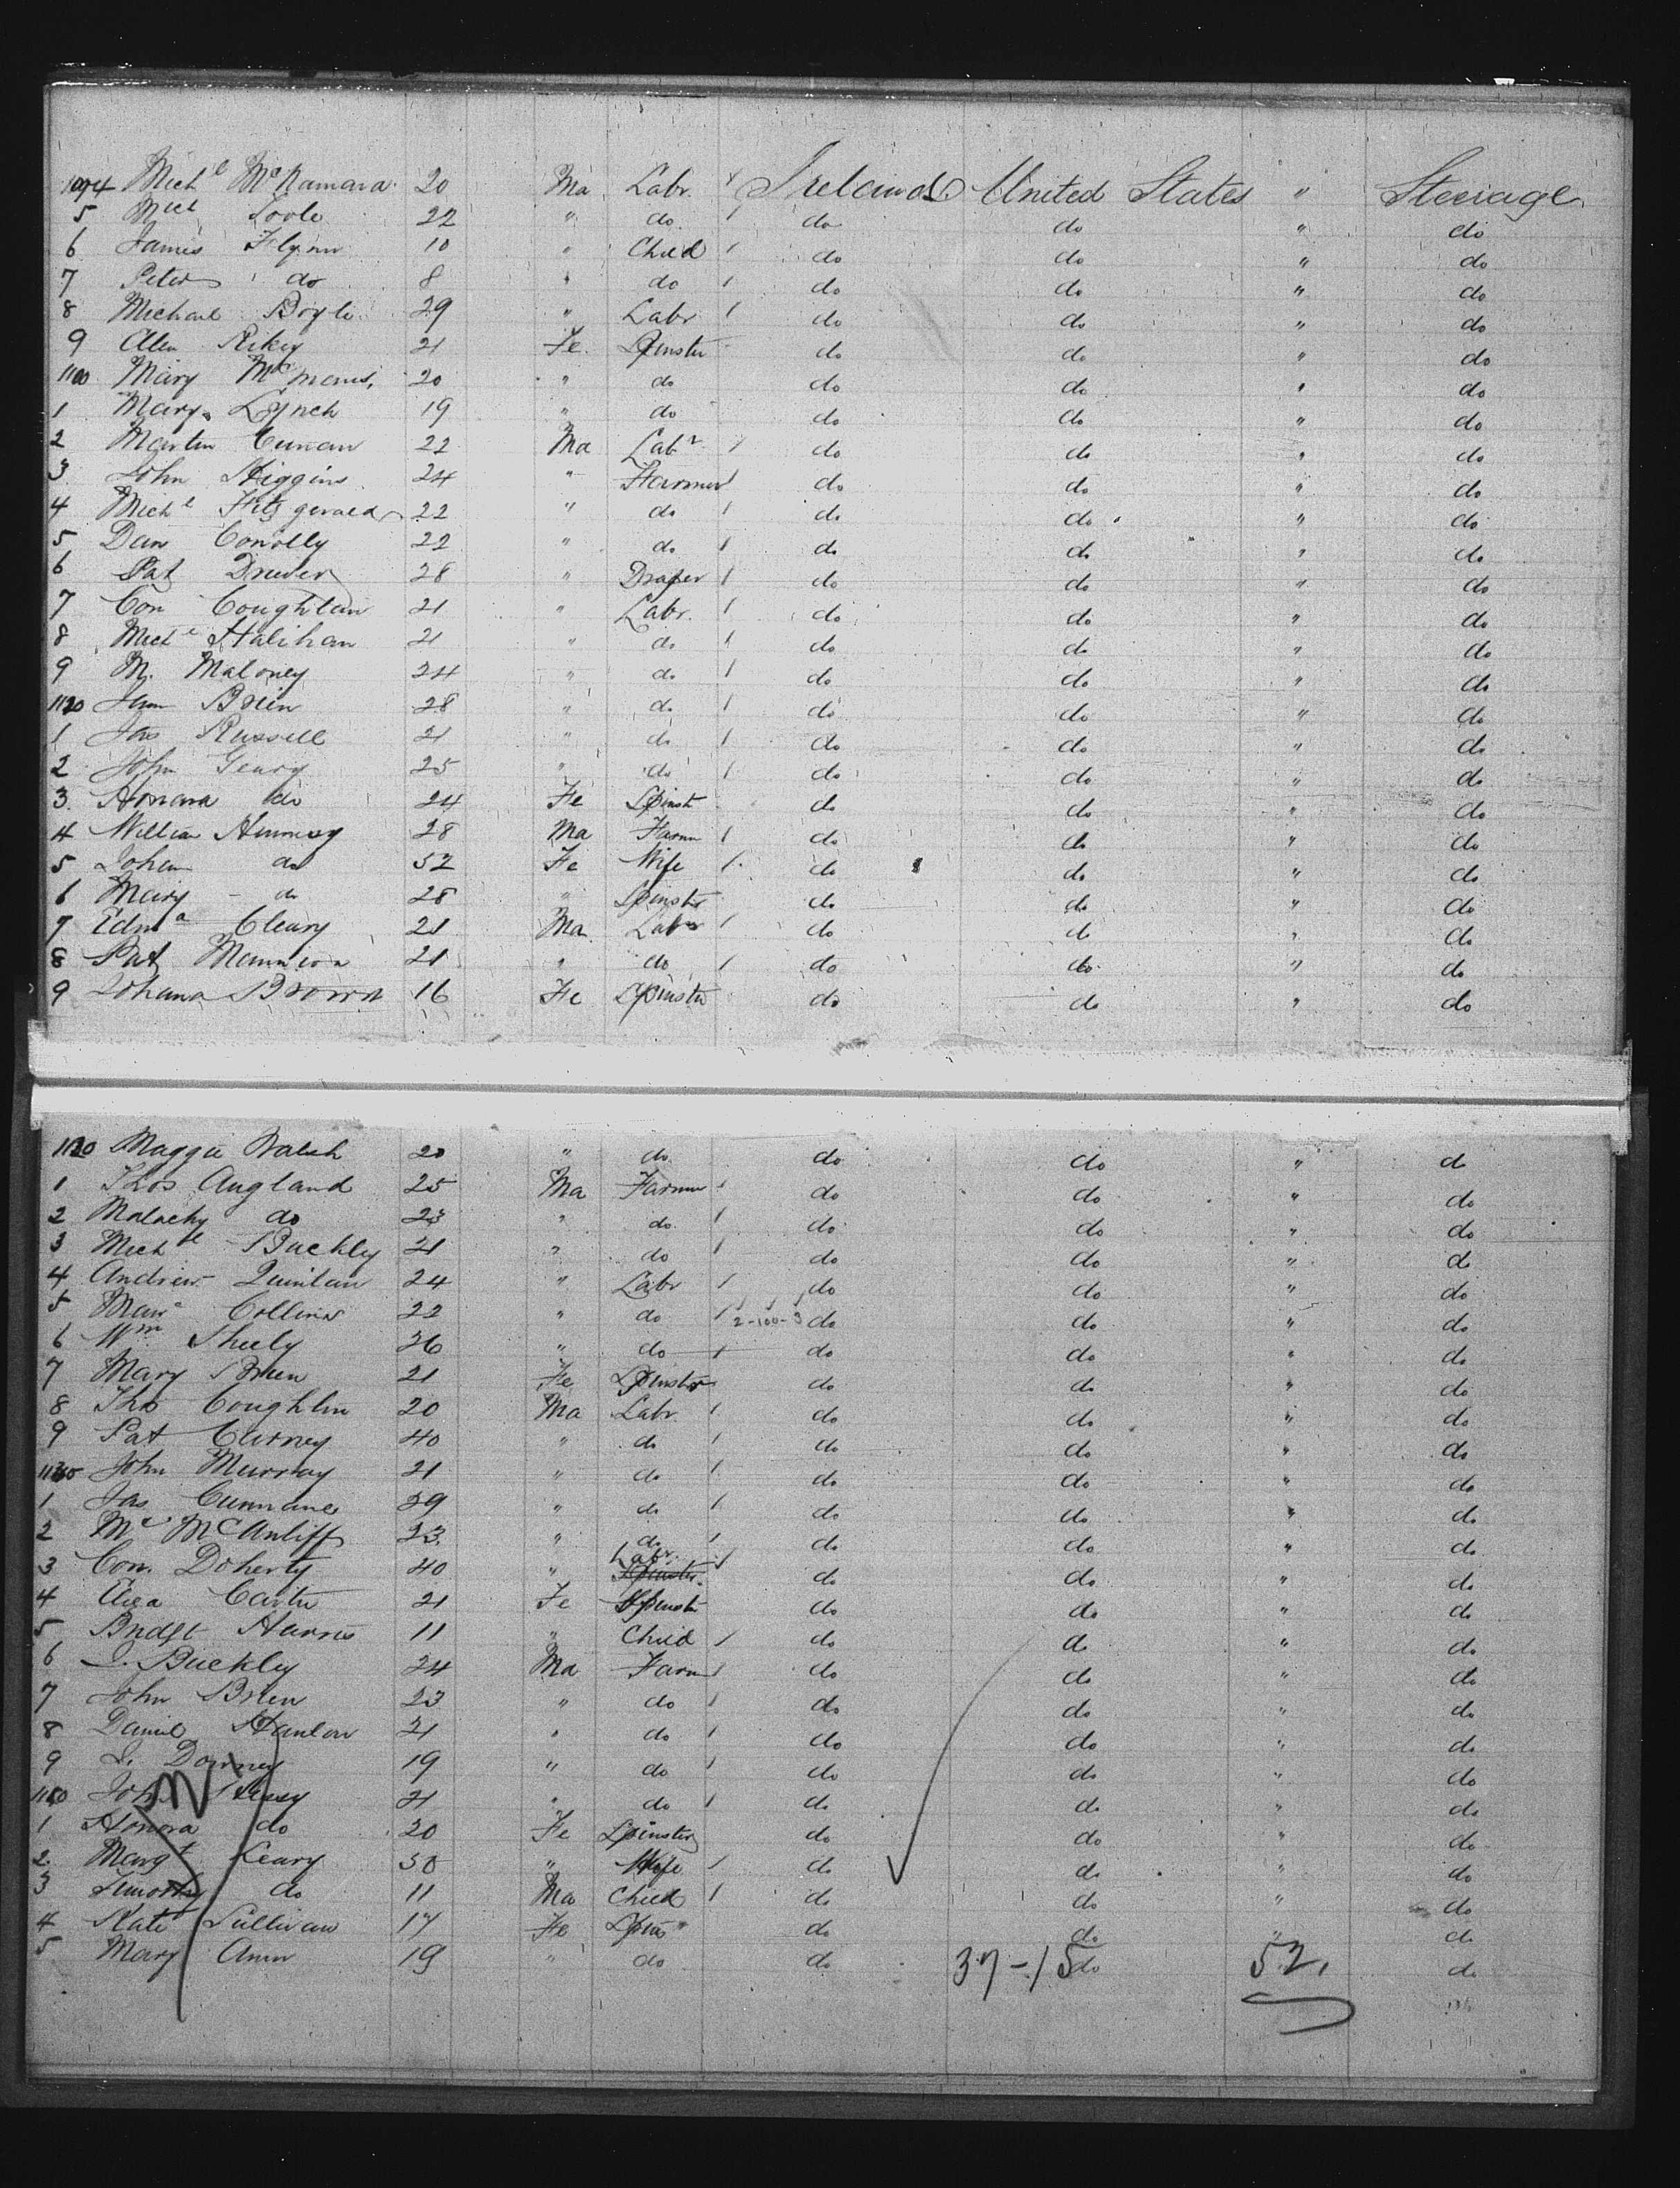 1094 Mich^l McNamara 20 Ma Labr Ireland United States " Steerage
5 Mich Toole 22 " do do do " do
6 James Flynn 10 " Child do do " do
7 Peter do 8 " do do do " do
8 Michael Boyle 29 " Labr do do " do
9 21 Fe. Spinster do do " do
1100 Mary McManus 20 " do do do " do
1 Mary Lynch 19 " do do do " do
2 Martin 22 Ma Lab^r do do " do
3 John Higgins 24 " Farmer do do " do
4 Mich^l Fitzgerald 22 " do do do " do
5 Dan Conolly 22 " do do do " do
6 Pat 28 " Draper do do " do
7 Con Coughlan 21 " Labr. do do " do
8 Mich^l Halihan 21 " do do do " do
9 M. Maloney 24 " do do do " do
1120 Brien 28 " do do do " do
1 Jas Russell 21 " do do do " do
2 John Geary 25 " do do do " do
3. Honara do 24 Fe Spinst do do " do
4 William 28 Ma Farm do do " do
5 Johan do 52 Fe Wife do do " do
6 Mary - do 28 " Spinster do do " do
7 Edm^d Cleary 21 Ma Labr do do " do
8 Pat Mannion 21 " do do do " do
9 Johana Brown 16 Fe Spinster do do " do
1120 Maggie Walsh 20 " do do do " do
1 Thos Angland 25 Ma Farmer do do " do
2 Malachy do 23 " do. do do " do
3 Mich^l Buckley 21 " do do do " do
4 Andrew Quinlan 24 " Labr do do " do
5 Collins 22 " do 2-100-3 do do " do
6 W^m Sheely 26 " do do do " do
7 Mary Brien 21 Fe Spinster do do " do
8 Tho Coughlin 20 Ma Labr do do " do
9 Pat 40 " do do do " do
John Murray 21 " do do do " do
1 Jas Cunnane 39 " do do do " do
2 McAuliff 23. " do do do " do
3 Con. Doherty 40 " Labr. Spinster. do do " do
4 Carter 21 Fe Spinst do do " do
5 Bridgt Harris 11 " Child do do " do
6 Buckley 24 Ma Farm do do " do
7 John Brien 23 " do do do " do
8 Daniel Hanlon 21 " do do do " do
9 19 " do do do " do
1150 John 21 " do do do " do
1 Honora do 20 Fe Spinster do do " do
2. Marg^t Leary 50 " Wife do do " do
3 Timothy do 11 Ma Child do do " do
4 Kate Sullivan 17 Fe Spins do do " do
5 Mary Ann 19 " do do do do
37-15 52.